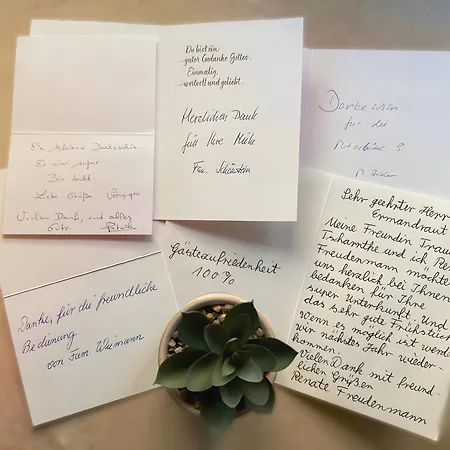 Ein kleines Dankeschön
Es war super
Liebe Grüße
Vielen Dank, und alles
Gute.
Du bist ein
guter Gedanke Gottes.
Einmalig,
wertvoll und geliebt.
Herzlichen Dank
für Ihre Mühe
Fam.
Dankeschön
für die
Mitarbeiter
Danke, für die freundliche
Bedienung
von Fam. Weimann
Gästezufriedenheit
100%
Sehr geehrter Herr
Ermandraut
Meine Freundin Traudl
und ich Ren
Freudenmann möchte
uns herzlich bei Ihnen
bedanken für Ihre
super Unterkunft. Und
das sehr gute Frühstück
wenn es möglich ist werde
wir nächstes Jahr wieder-
kommen.
Vielen Dank mit freund-
lichen Grüßen
Renate Freudenmann